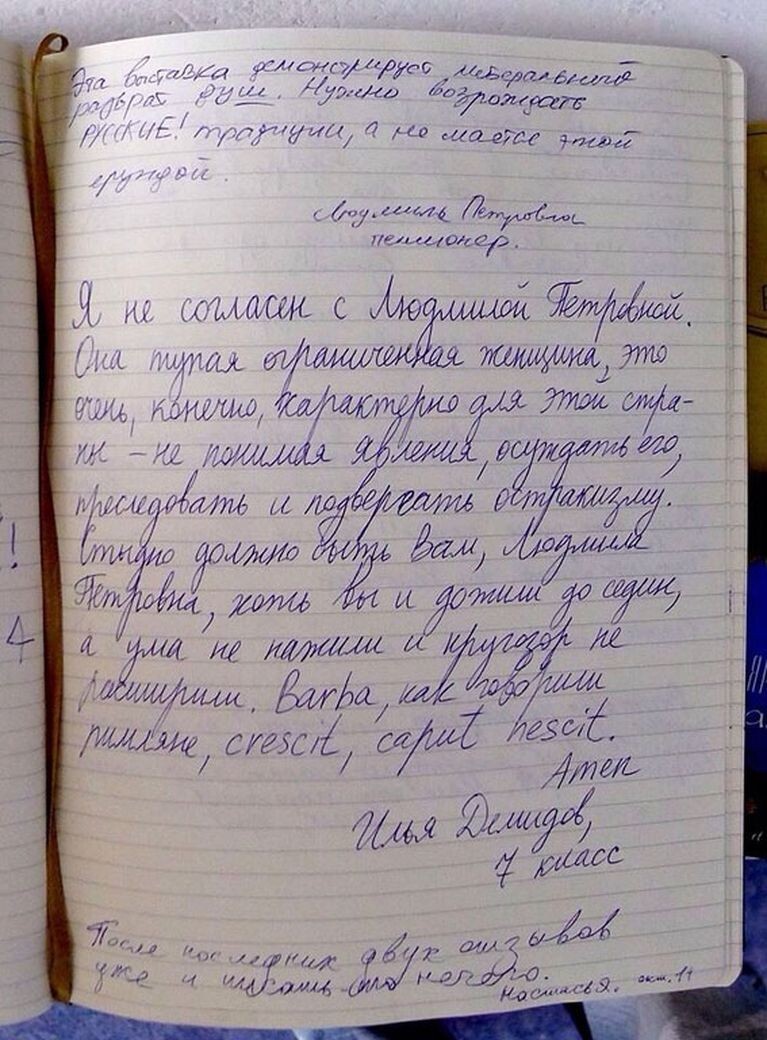 Эта выставка демонстрирует либеральный
разврат душ. Нужно возрождать
РУССКИЕ! традиции, а не маятся этой
ерундой.
Людмила Петровна
пенсионер.
Я не согласен с Людмилой Петровной.
Она тупая ограниченная женщина, это
очень, конечно, характерно для этой стра-
ны – не понимая явления, осуждать его,
преследовать и подвергать остракизму.
Стыдно должно быть Вам, Людмила
Петровна, хоть вы и дожили до седин,
а ума не нажили и кругозор не
расширили. Barba, как говорили
римляне, crescit, caput nescit.
Amen
Илья Демидов,
7 класс
После последних двух отзывов
уже и писать-то нечего.
Настасья. окт. 11
!
4